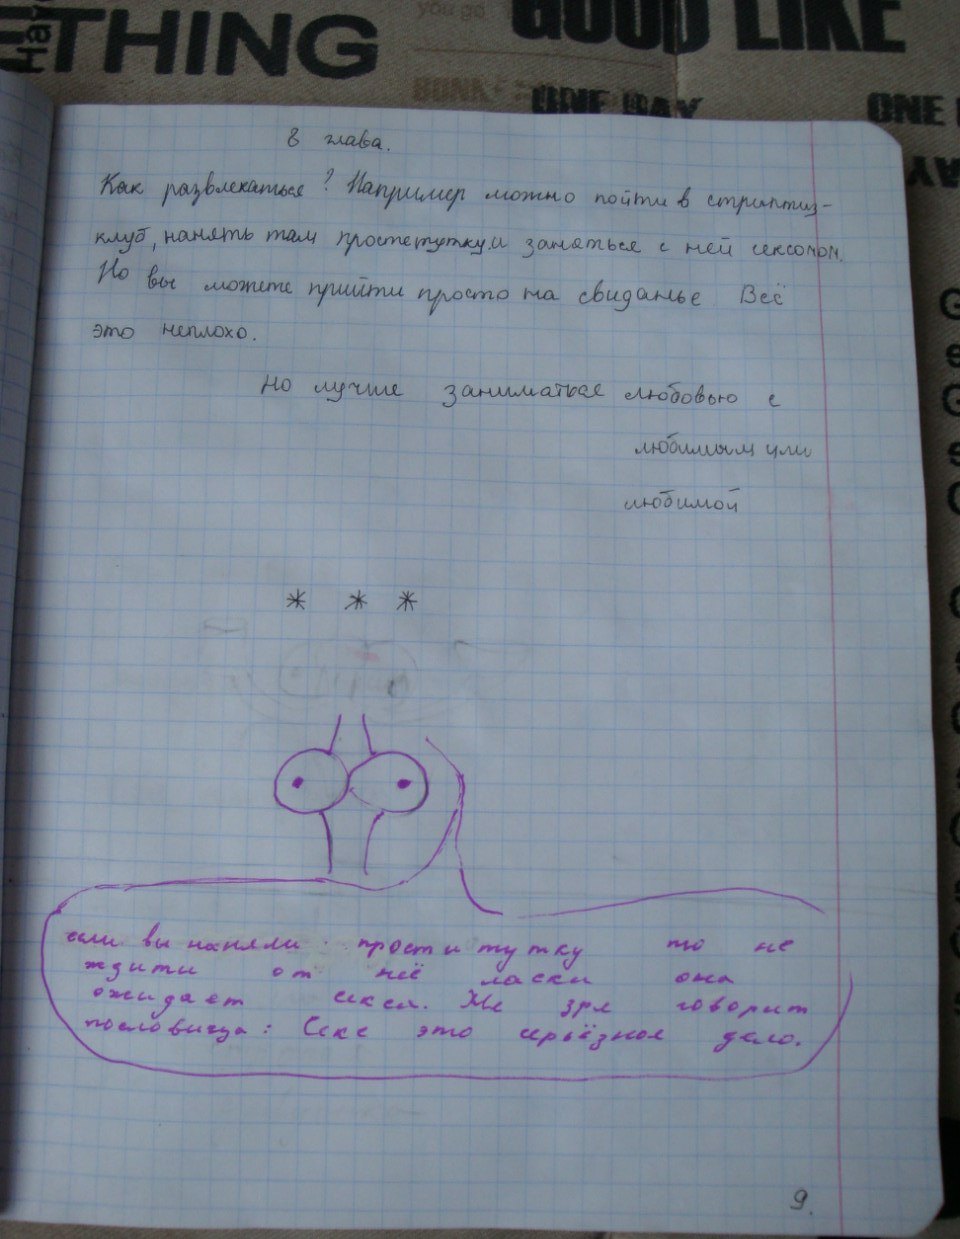 ETHING
Наро
you go
GOOD LIKE
ONE DAY
ONE
AY
8 глава.
Как развлекаться? Например можно пойти в стриптиз-
клуб, нанять там простетутку и заняться с ней сексомом.
Но вы можете прийти просто на свиданье Всё
это неплохо.
Но лучше заниматься любовью с
любимым или
любимой
* * *
если вы наняли проститутку то не
ждити от неё ласки она
ожидает секса. Не зря говорит
пословица: Секс это серьёзное дело.
9.